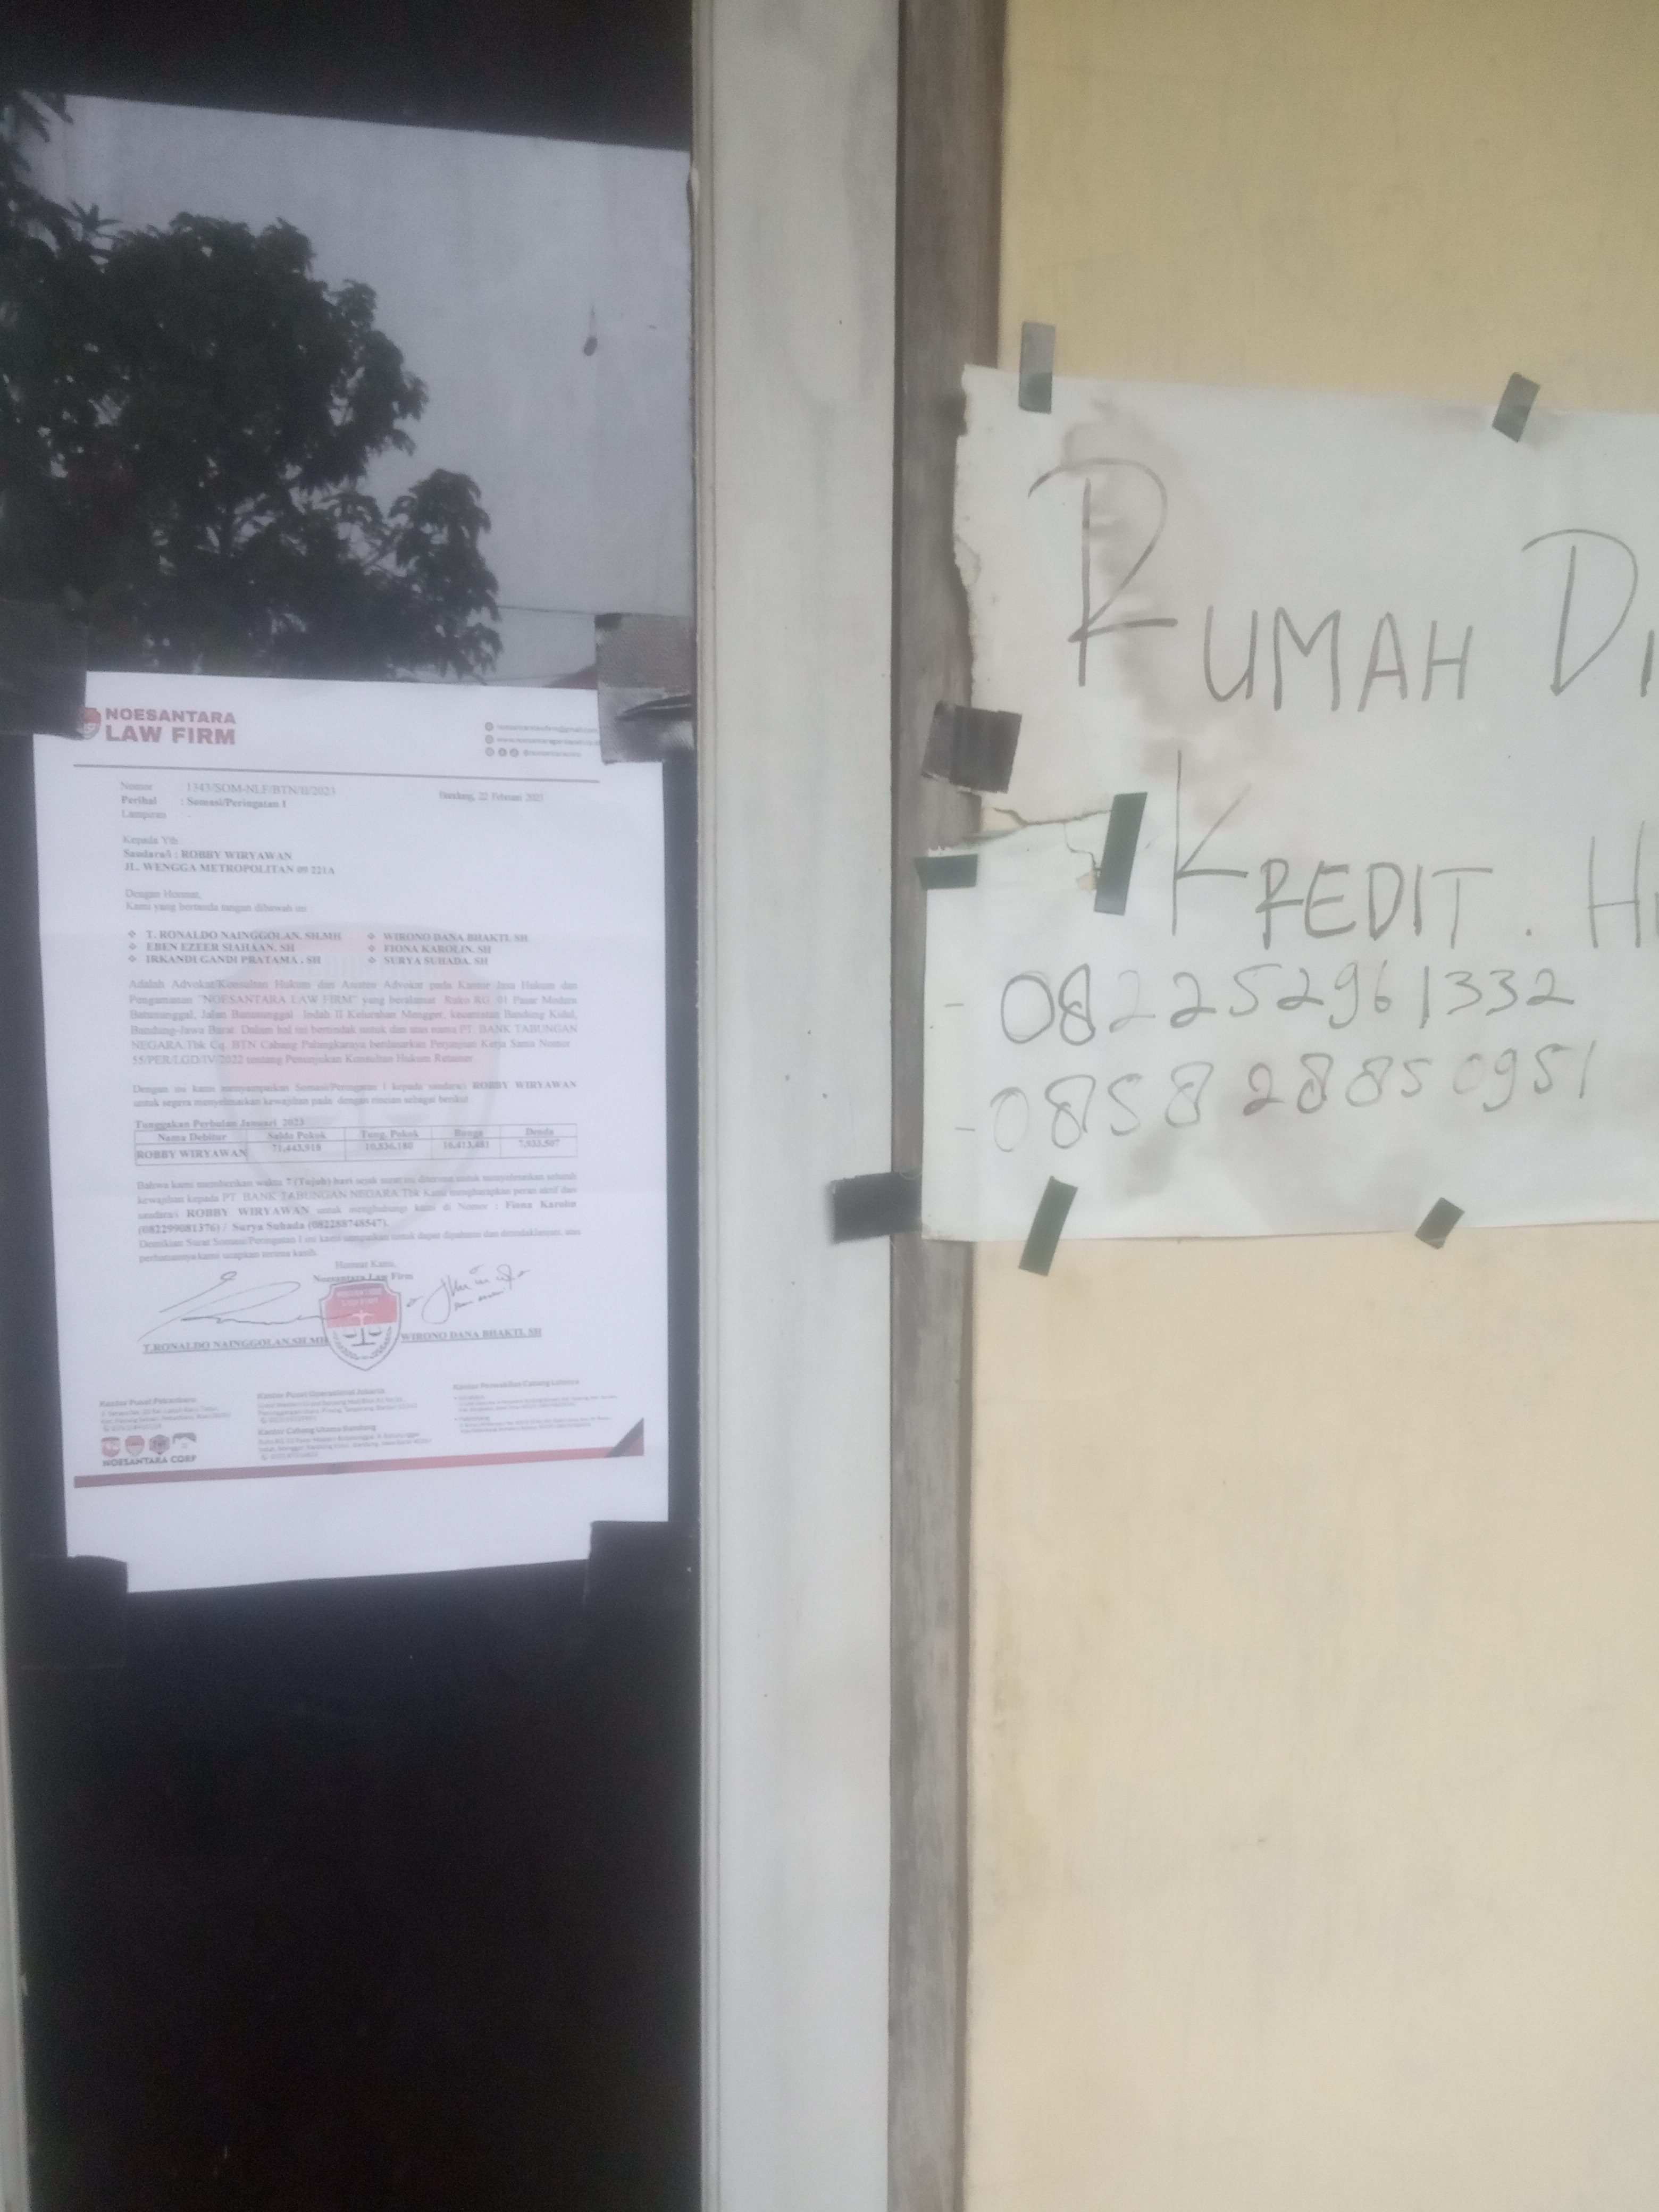 NOESANTARA
LAW FIRM
Nomor 1343/SOM-NLF/BTN/II/2023
Bandung, 22 Februari 2023
Perihal : Somasi/Peringatan I
Lampiran
Kepada Yth
Saudara/i : ROBBY WIRYAWAN
JL. WENGGA METROPOLITAN 09 221A
Dengan Hormat,
Kami yang bertanda tangan dibawah ini
❖ T. RONALDO NAINGGOLAN, SH,MH ❖ WIRONO DANA BHAKTI, SH
❖ EBEN EZEER SIAHAAN, SH ❖ FIONA KAROLIN, SH
❖ IRKANDI GANDI PRATAMA , SH ❖ SURYA SUHADA, SH
Adalah Advokat/Konsultan Hukum dan Asisten Advokat pada Kantor Jasa Hukum dan
Pengamanan "NOESANTARA LAW FIRM" yang beralamat Ruko RG. 01 Pasar Modern
Batununggal, Jalan Batununggal Indah II Kelurahan Mengger, kecamatan Bandung Kidul,
Bandung-Jawa Barat. Dalam hal ini bertindak untuk dan atas nama PT. BANK TABUNGAN
NEGARA Tbk Cq. BTN Cabang Palangkaraya berdasarkan Perjanjian Kerja Sama Nomor
55/PER/LGD/IV/2022 tentang Penunjukan Konsultan Hukum Retainer
Dengan ini kami menyampaikan Somasi/Peringatan I kepada saudara/i ROBBY WIRYAWAN
untuk segera menyelesaikan kewajiban pada dengan rincian sebagai berikut
Tunggakan Perbulan Januari 2023
Nama Debitur Saldo Pokok Tung. Pokok Bunga Denda
ROBBY WIRYAWAN 71,443,918 10,836,180 16,413,481 7,933,507
Bahwa kami memberikan waktu 7 (Tujuh) hari sejak surat ini diterima untuk menyelesaikan seluruh
kewajiban kepada PT. BANK TABUNGAN NEGARA Tbk Kami mengharapkan peran aktif dari
saudara/i ROBBY WIRYAWAN untuk menghubungi kami di Nomor : Fiona Karolin
(082299081376) / Surya Suhada (082288748547).
Demikian Surat Somasi/Peringatan I ini kami sampaikan untuk dapat dipahami dan ditindaklanjuti, atas
perhatiannya kami ucapkan terima kasih
Hormat Kami,
Noesantara Law Firm
T.RONALDO NAINGGOLAN,SH,MH WIRONO DANA BHAKTI, SH
Kantor Pusat Pekanbaru
Kantor Pusat Operasional Jakarta
Kantor Perwakilan Cabang Lainnya
Kantor Cabang Utama Bandung
NOESANTARA CORP
RUMAH DI
KREDIT. H
- 082252961332
- 085828850951